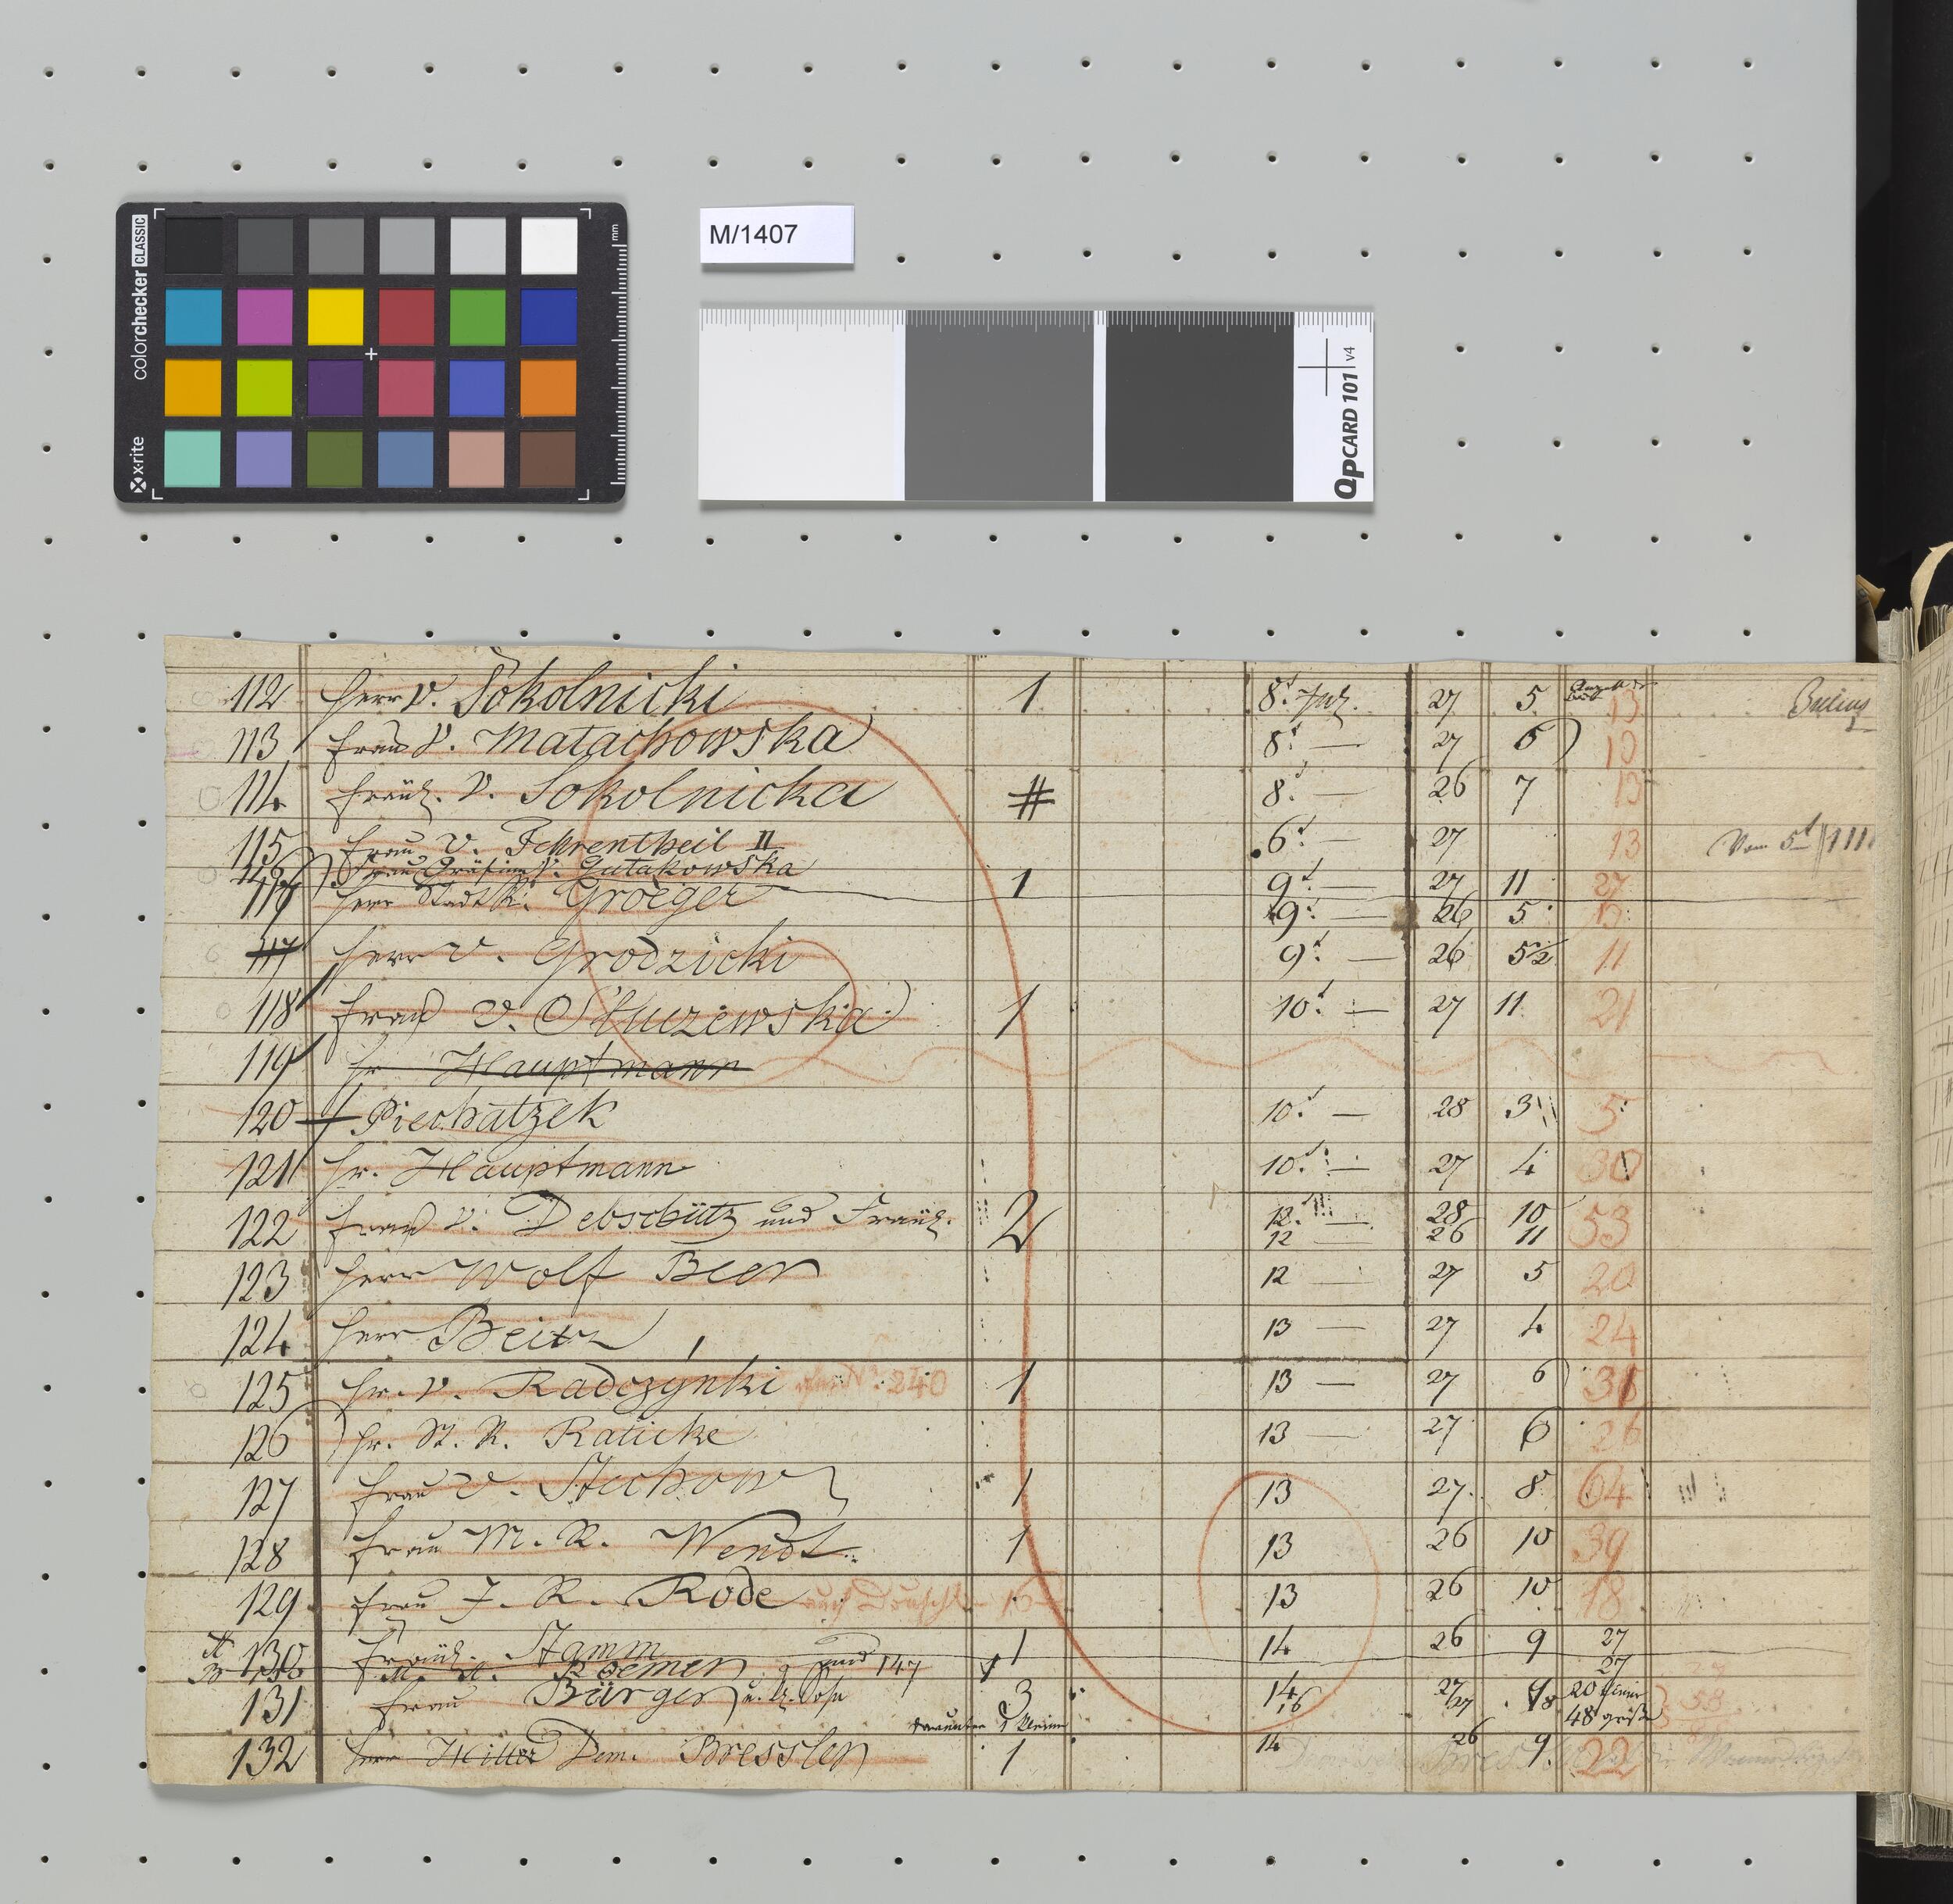 colorchecker CLASSIC
x-rite
mm
M/1407
QPCARD 101 v4
112 Herr V. Sokolnicki 1 8t 27 5 13 Julius
113 Frau V. Matachowska 8t — 27 6 10
114 Fräul. V. Sokolnicka # 8t — 26 7 13
115 Frau V. Fehrentheil II 6t — 27 13 Vom 5t
116 Frau Gräfinn V. Gutakowska 1 9t — 27 11 27
117 Herr Stadt R. Groeger 9t — 26 5
117 Herr V. Grodzicki 9t — 26 5½ 11
118 Frau V. Skuzewska 1 10t — 27 11 21
119 Hr Hauptmann
120 Piechatzek 10t — 28 3 5
121 Hr. Hauptmann 10t — 27 4 30
122 Frau V. Debschütz und Fräul. 2 12 — 28 10 53
12 — 26 11
123 Herr Wolf Beer 12 — 27 5 20
124 Herr Beitz 13 — 27 4 24
125 Hr. V. Radczynki No. 240 1 13 — 27 6
126 Hr. St. R. Raticke 13 — 27 6 26
127 Frau V. Stechow 1 13 27 8 64
128 Frau M. R. Wendt 1 13 26 10 39
129 Frau J. R. Rode 13 26 10 18
130 Fräul. Stamm 1 14 26 9 27
Roemer und 147
131 Frau Bürger 3 14 27 20 48 58
132 Herr Hiller Dem. Bressler 1 14 26 9 22